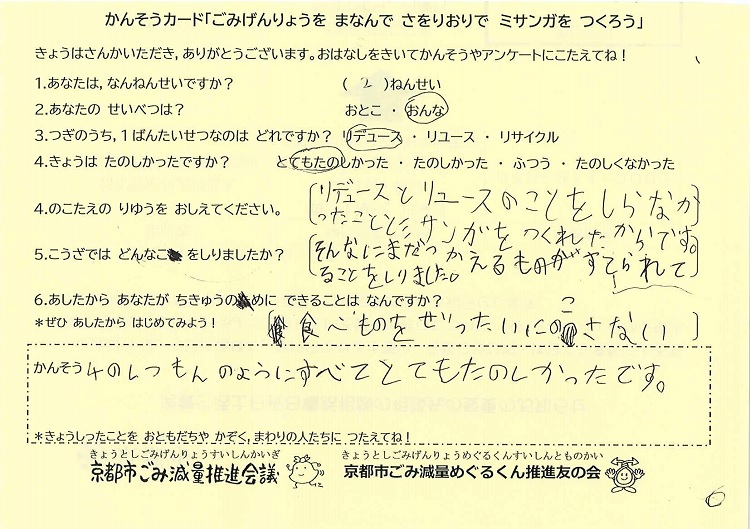 かんそうカード「ごみげんりょうを まなんで さをりおりで ミサンガを つくろう」
きょうはさんかいただき、ありがとうございます。おはなしをきいてかんそうやアンケートにこたえてね!
1.あなたは、なんねんせいですか? ( 2 )ねんせい
2.あなたの せいべつは? おとこ ・ おんな
3.つぎのうち、1ばんたいせつなのは どれですか? リデュース ・ リユース ・ リサイクル
4.きょうは たのしかったですか? とてもたのしかった ・ たのしかった ・ ふつう ・ たのしくなかった
4.のこたえの りゆうを おしえてください。
リデュースとリユースのことをしらなか
ったこととミサンガをつくれたからです。
5.こうざでは どんなこ をしりましたか?
そんなにまだつかえるものがすてられて
ることをしりました。
6.あしたから あなたが ちきゅうの ために できることは なんですか?
*ぜひ あしたから はじめてみよう!
食べものをぜったいにのこさない
かんそう 4のしつもんのようにすべてとてもたのしかったです。
*きょうしったことを おともだちや かぞく、まわりの人たちに つたえてね!
きょうとしごみげんりょうすいしんかいぎ きょうとしごみげんりょうめぐるくんすいしんとものかい
京都市ごみ減量推進会議 京都市ごみ減量めぐるくん推進友の会
6